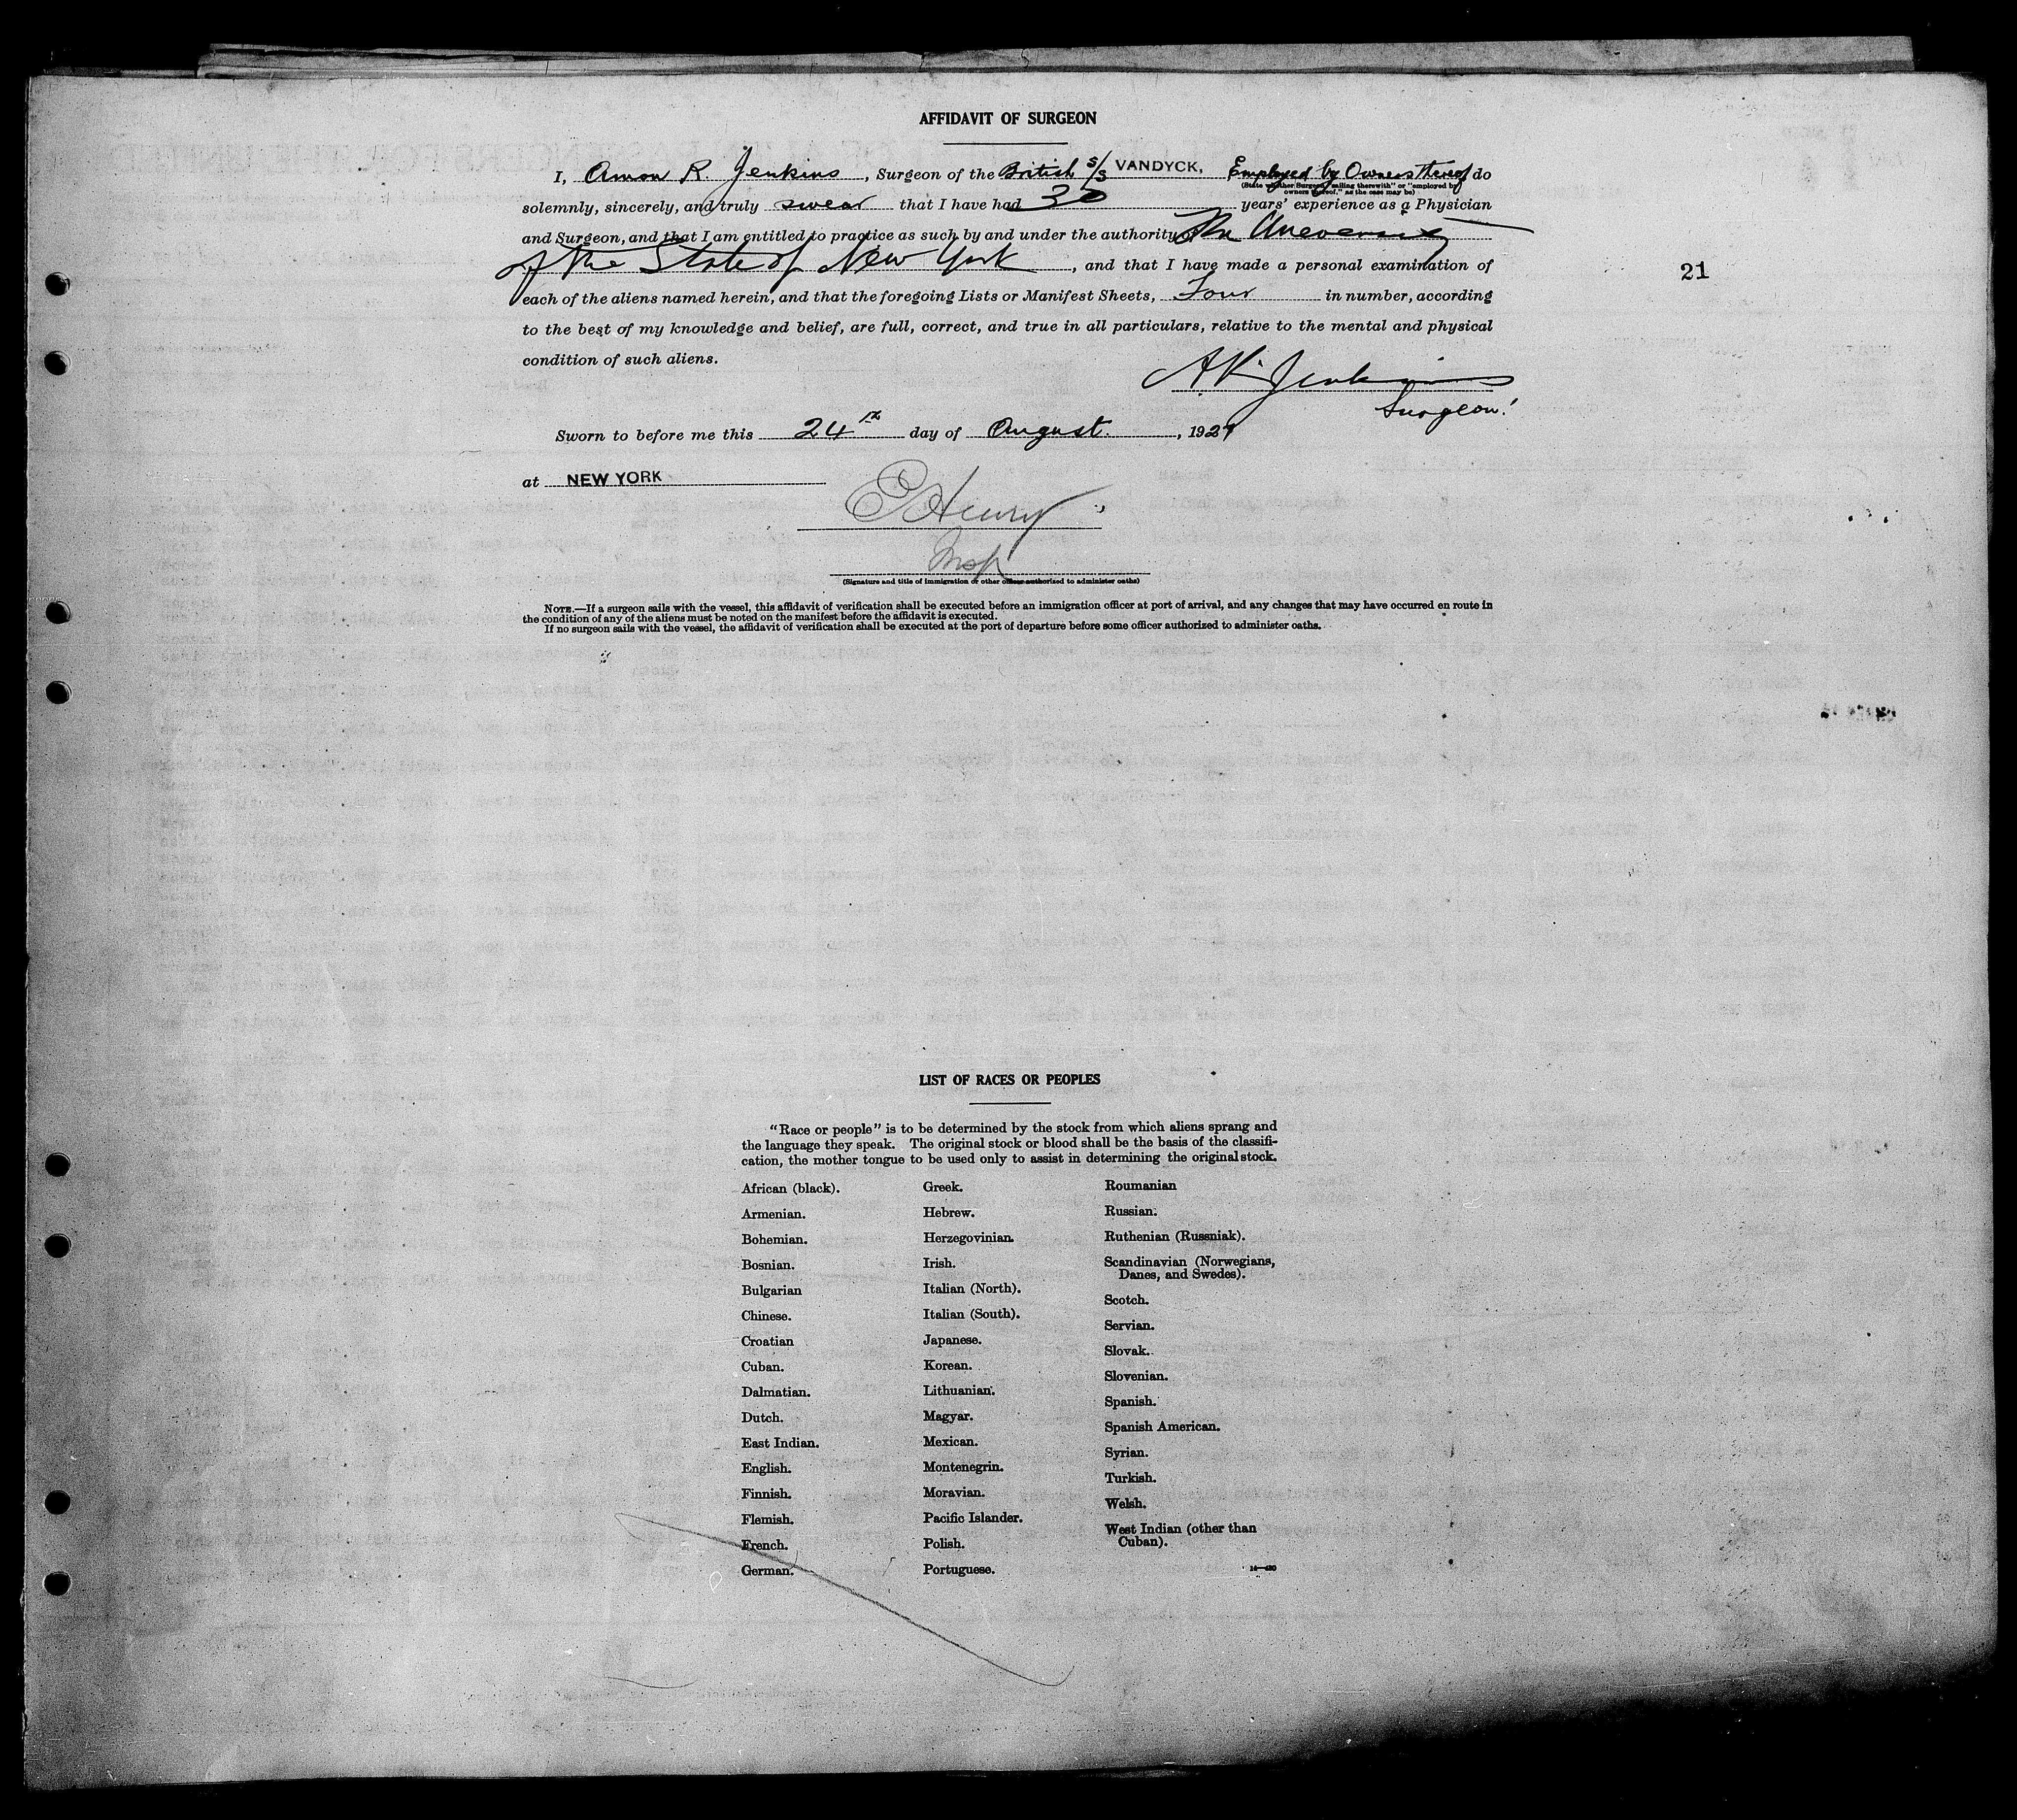 AFFIDAVIT OF SURGEON
I, Amon R. Jenkins, Surgeon of the British s/s VANDYCK, Employed by Owners thereof do
(State whether Surgeon "sailing therewith" or "employed by owners thereof," as the case may be)
solemnly, sincerely, and truly swear that I have had 30 years' experience as a Physician
and Surgeon, and that I am entitled to practice as such by and under the authority of The University
of the State of New York, and that I have made a personal examination of
21
each of the aliens named herein, and that the foregoing Lists or Manifest Sheets, Four in number, according
to the best of my knowledge and belief, are full, correct, and true in all particulars, relative to the mental and physical
condition of such aliens.
A R Jenkins
Surgeon.
Sworn to before me this 24th day of August, 192
at NEW YORK
E Henry
Insp
(Signature and title of immigration or other officer authorized to administer oaths)
NOTE.—If a surgeon sails with the vessel, this affidavit of verification shall be executed before an immigration officer at port of arrival, and any changes that may have occurred en route in
the condition of any of the aliens must be noted on the manifest before the affidavit is executed.
If no surgeon sails with the vessel, the affidavit of verification shall be executed at the port of departure before some officer authorized to administer oaths.
LIST OF RACES OR PEOPLES
"Race or people" is to be determined by the stock from which aliens sprang and
the language they speak. The original stock or blood shall be the basis of the classifi-
cation, the mother tongue to be used only to assist in determining the original stock.
African (black).
Armenian.
Bohemian.
Bosnian.
Bulgarian
Chinese.
Croatian
Cuban.
Dalmatian.
Dutch.
East Indian.
English.
Finnish.
Flemish.
French.
German.
Greek.
Hebrew.
Herzegovinian.
Irish.
Italian (North).
Italian (South).
Japanese.
Korean.
Lithuanian.
Magyar.
Mexican.
Montenegrin.
Moravian.
Pacific Islander.
Polish.
Portuguese.
Roumanian
Russian.
Ruthenian (Russniak).
Scandinavian (Norwegians,
Danes, and Swedes).
Scotch.
Servian.
Slovak.
Slovenian.
Spanish.
Spanish American.
Syrian.
Turkish.
Welsh.
West Indian (other than
Cuban).